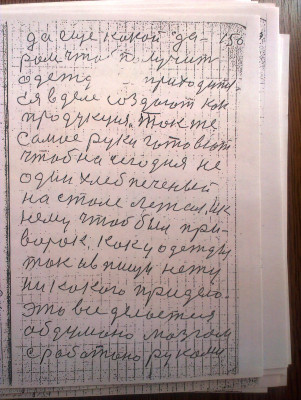 да еще какой да- 150
ром чтоб получит
одетд приходит
ся в деле создают как
продукция. Так же
самое руки готовют
чтоб на сегодня не
один хлеб печеный
на столе лежал, и к
нему чтоб был при-
варок. Как у одежды
так и в пищи нету
ни какого придела
Это все делается
обдумано мозгом
сработано руками